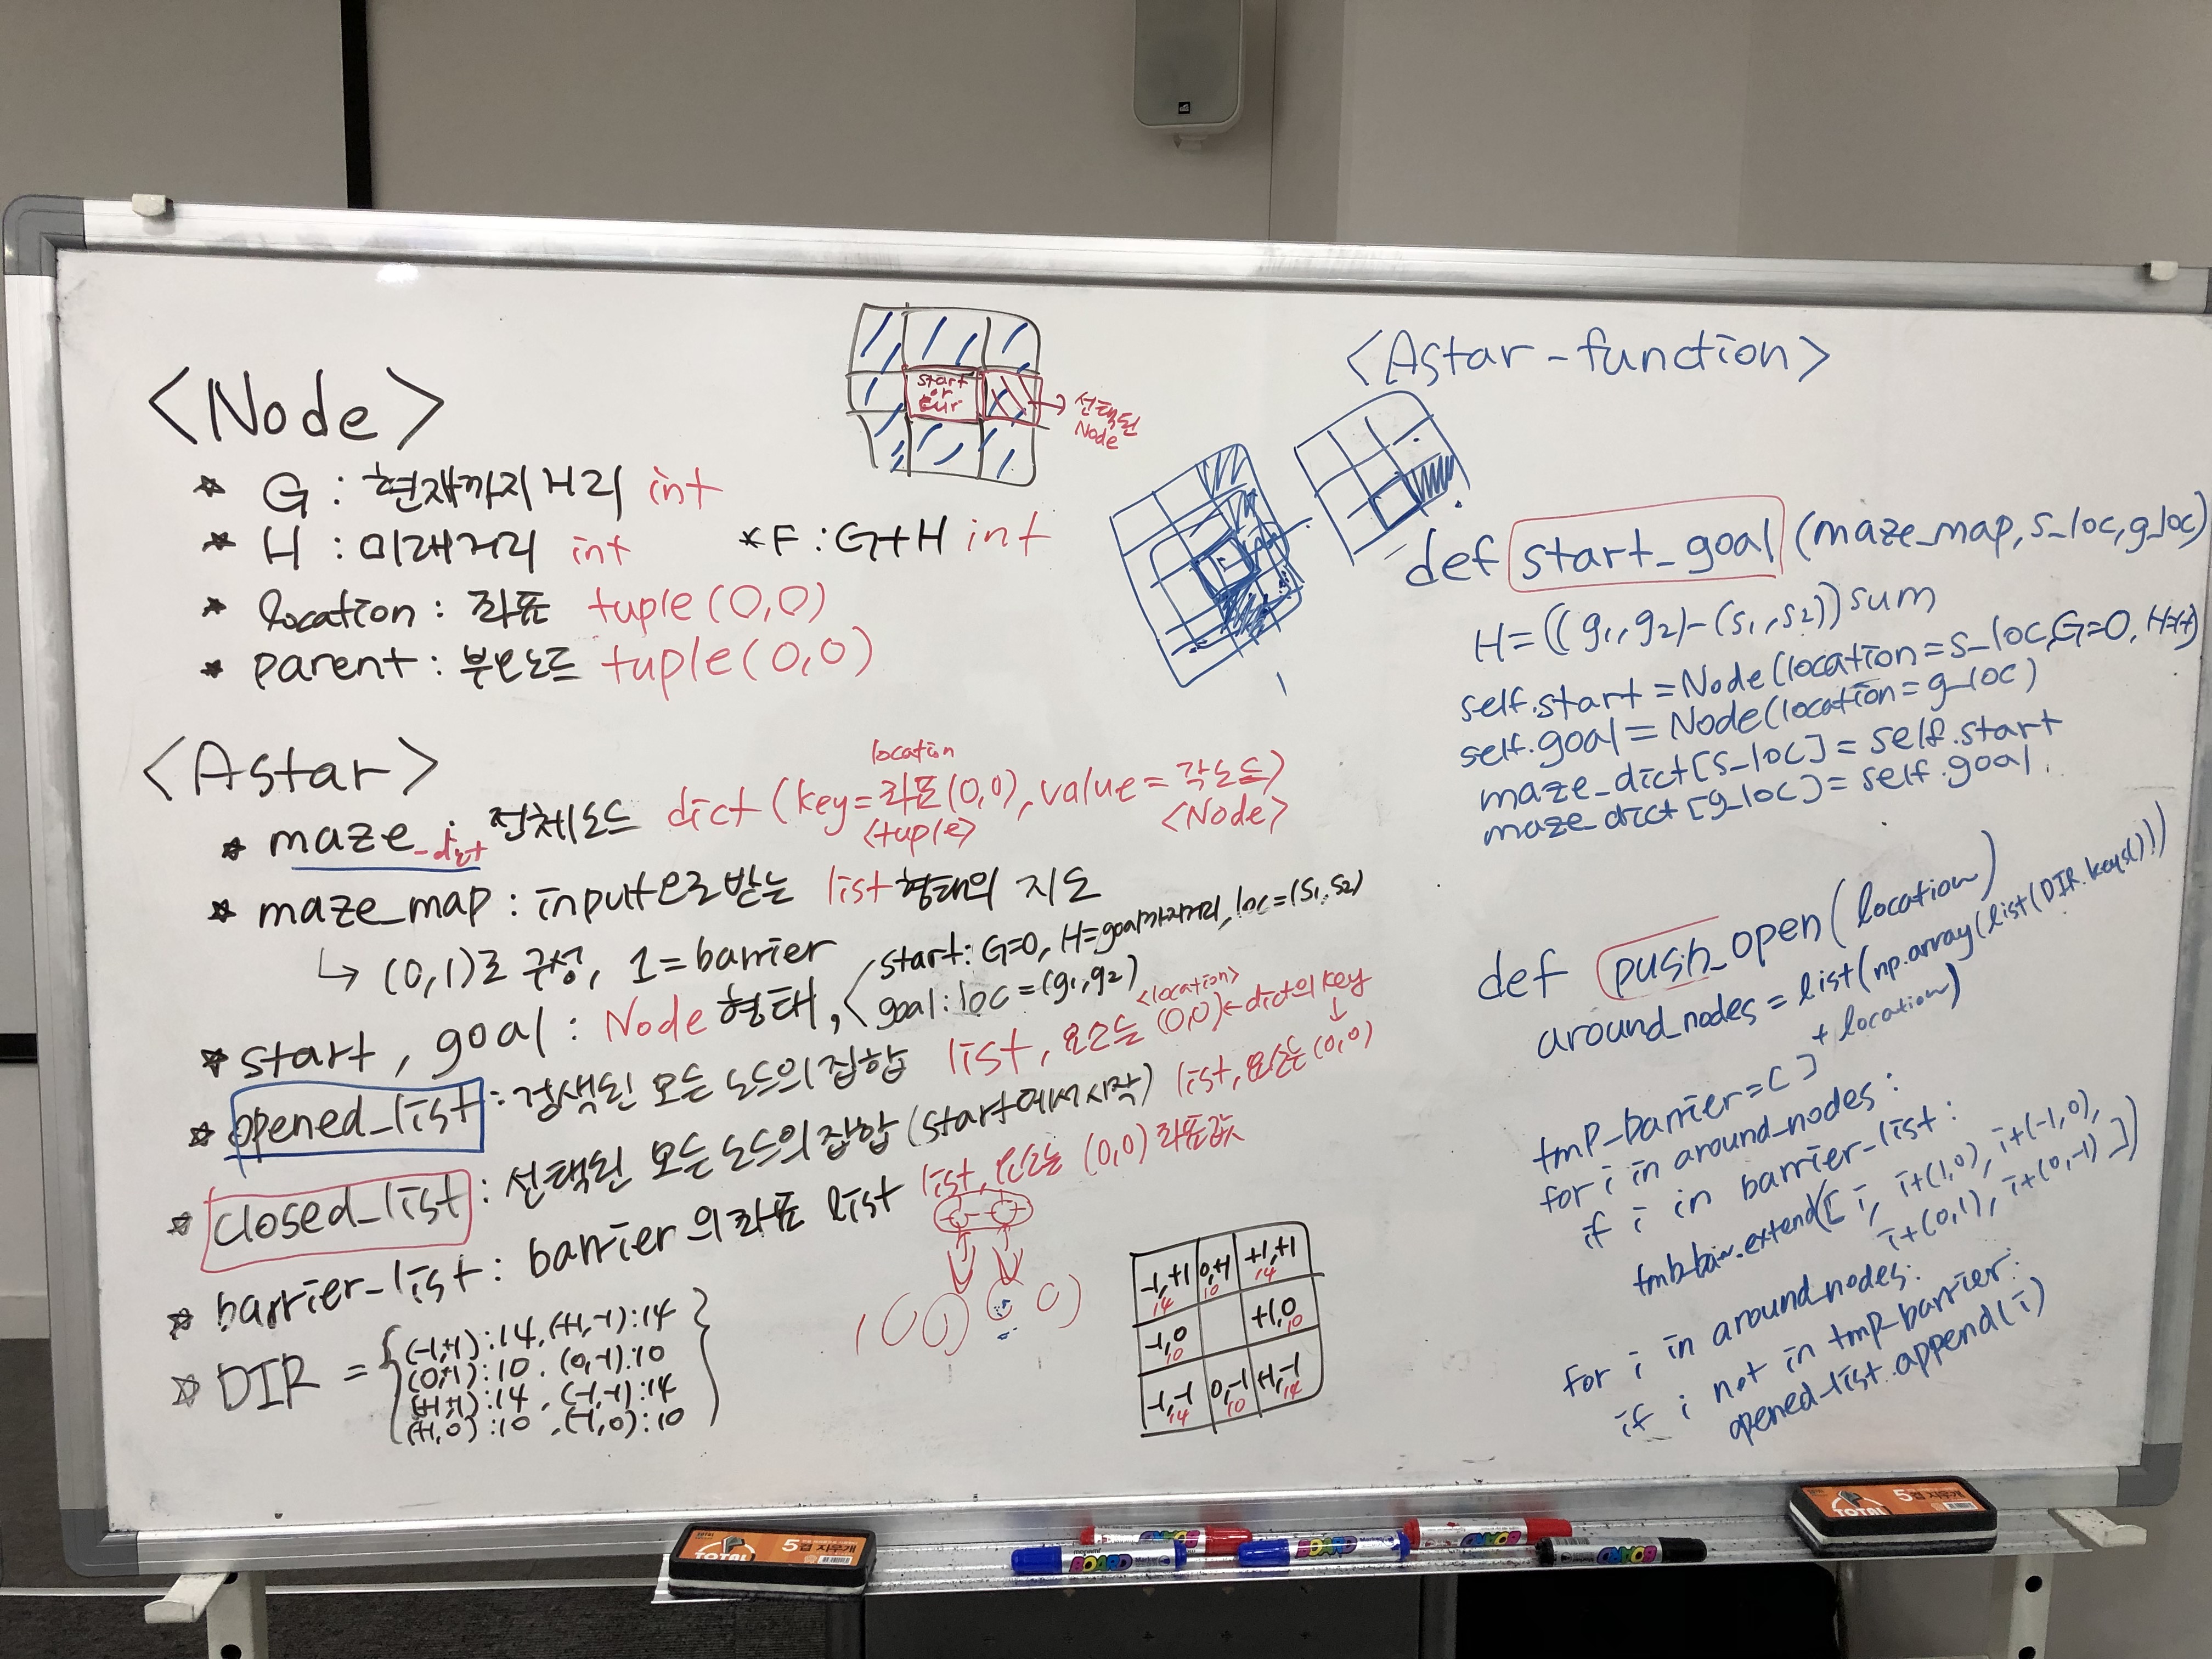 <Node>
* G : 현재까지 거리 int
* H : 미래거리 int
* F : G+H int
* location : 좌표 tuple(0,0)
* parent : 부모노드 tuple(0,0)
start
or
cur
선택된
Node
<Astar>
location
* maze_dict 전체노드 dict(key=좌표(0,0), value=각노드)
<tuple> <Node>
* maze_map : input으로 받는 list 형태의 지도
↳ (0,1)로 구성, 1=barrier
* start, goal : Node 형태,
start: G=0, H=goal까지거리, loc=(s1,s2)
goal: loc=(g1,g2)
<location>
* opened_list : 검색된 모든 노드의 집합 list, 요소는 (0,0)←dict의 key
* closed_list : 선택된 모든 노드의 집합 (start에서 시작) list, 요소는 (0,0)
* barrier-list : barrier의 좌표 list list, 요소는 (0,0) 좌표값
* DIR = {(-1,+1):14, (+1,-1):14
(0,+1):10, (0,-1):10
(+1,+1):14, (-1,-1):14
(+1,0):10, (-1,0):10}
-1,+1 14 0,+1 10 +1,+1 14
-1,0 10 +1,0 10
-1,-1 14 0,-1 10 +1,-1 14
<Astar-function>
def start_goal (maze_map, s_loc, g_loc)
H=((g1,g2)-(s1,s2)) sum
self.start = Node(location=s_loc, G=0, H=H)
self.goal = Node(location=g_loc)
maze_dict[s_loc] = self.start
maze_dict[g_loc] = self.goal.
def push_open(location)
around_nodes = list(np.array(list(DIR.keys()))
+ location)
tmp_barrier=[]
for i in around_nodes:
if i in barrier-list:
extend([i, i+(1,0), i+(-1,0),
i+(0,1), i+(0,-1)])
for i in around_nodes:
if i not in tmp_barrier:
opened_list.append(i)
TOTAL
5겹 지우개
BOARD
BOARD
BOARD
BOARD
BOARD
TOTAL
5겹 지우개